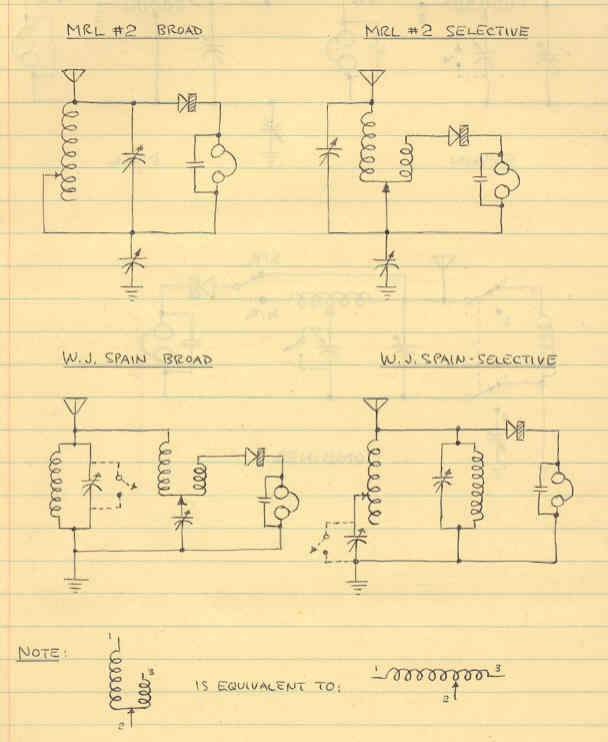 MRL #2 BROAD
MRL #2 SELECTIVE
W.J. SPAIN BROAD
W.J. SPAIN-SELECTIVE
NOTE:
1
3
2
IS EQUIVALENT TO:
1
3
2